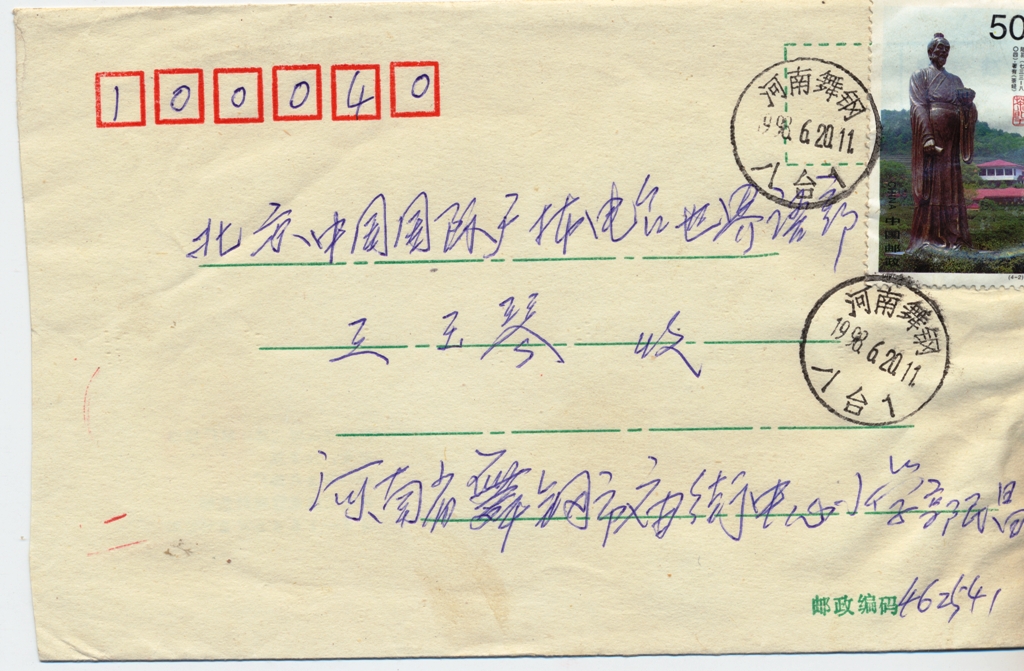 100040
50
中国邮政
CHINA
河南舞钢
1998.6.20.11.
八台1
北京中国国际广播电台世界语部
王玉琴 收
河南舞钢
1998.6.20.11.
八台1
河南省舞钢市
街中心小学郭
昌
邮政编码 462541